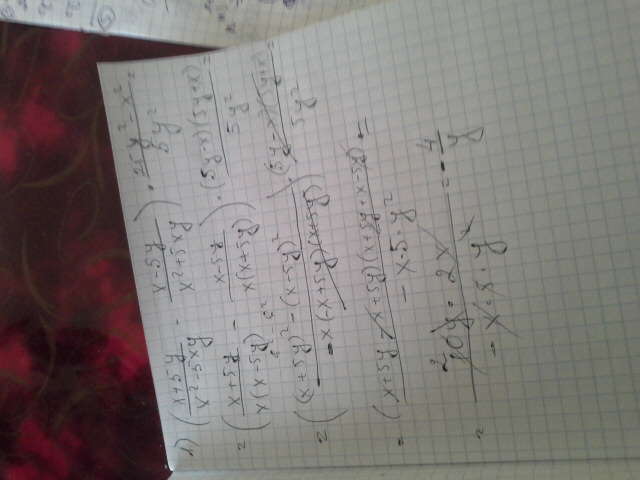 1) ((x+5y)/(x²-5xy) - (x-5y)/(x²+5xy)) · (25y²-x²)/(5y²) =
= ((x+5y)/(x(x-5y)) - (x-5y)/(x(x+5y))) · ((5y-x)(5y+x))/(5y²) =
= (((x+5y)²-(x-5y)²)/(-x(-x+5y)(x+5y))) · ((5y-x)(5y+x))/(5y²) =
= ((x+5y-x+5y)(x+5y+x-5y))/(-x·5·y²) =
= (10y·2x)/(-x·5·y²) = -4/y